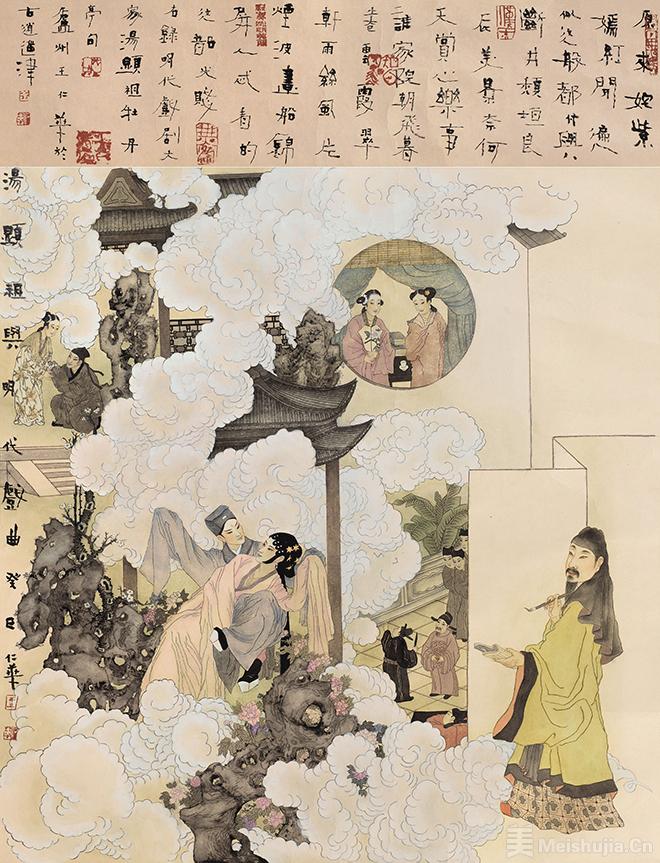 原來姹紫
嫣紅開遍
似這般都付與
斷井頹垣良
辰美景奈何
天賞心樂事
誰家院朝飛暮
卷雲霞翠
軒雨絲風片
煙波畫船錦
屏人忒看的
這韶光賤
右錄明代戲劇大
家湯顯祖牡丹
亭句
廬州王仁華於
古逍遙津
湯顯祖與明代戲曲癸巳仁華
美 Meishujia.Cn